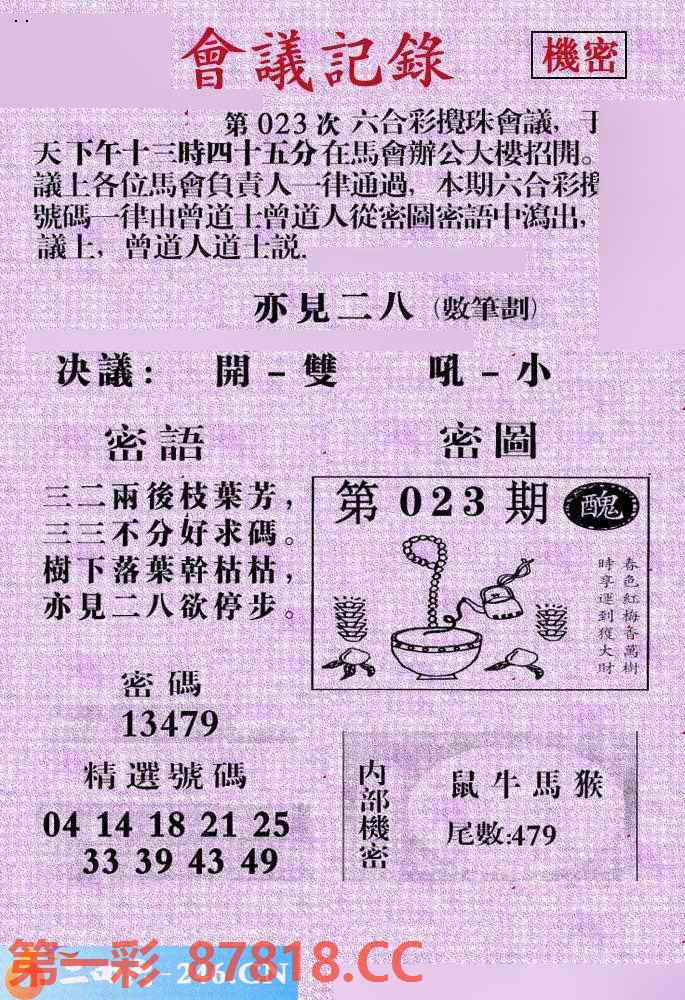 會議記錄
機密
第 023 次 六合彩攪珠會議，于
天下午十三時四十五分在馬會辦公大樓招開。
議上各位馬會負責人一律通過，本期六合彩攪
號碼一律由曾道士曾道人從密圖密語中瀉出，
議上，曾道人道士説.
亦見二八（數筆劃）
决議： 開－雙 吼－小
密語
三二兩後枝葉芳，
三三不分好求碼。
樹下落葉幹枯枯，
亦見二八欲停步。
密碼
13479
精選號碼
04 14 18 21 25
33 39 43 49
密圖
第 023 期
醜
春色紅梅香萬樹
時享運到獲大財
内部機密
鼠牛馬猴
尾數:479
第一彩 87818.CC
246.CN